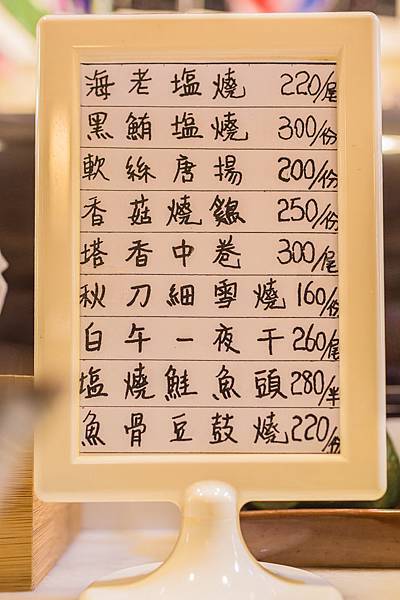 海老塩燒 220/尾
黑鮪塩燒 300/份
軟絲唐揚 200/份
香菇燒鷄 250/份
塔香中卷 300/尾
秋刀細雪燒 160/份
白午一夜干 260/尾
塩燒鮭魚頭 280/半
魚骨豆鼓燒 220/份